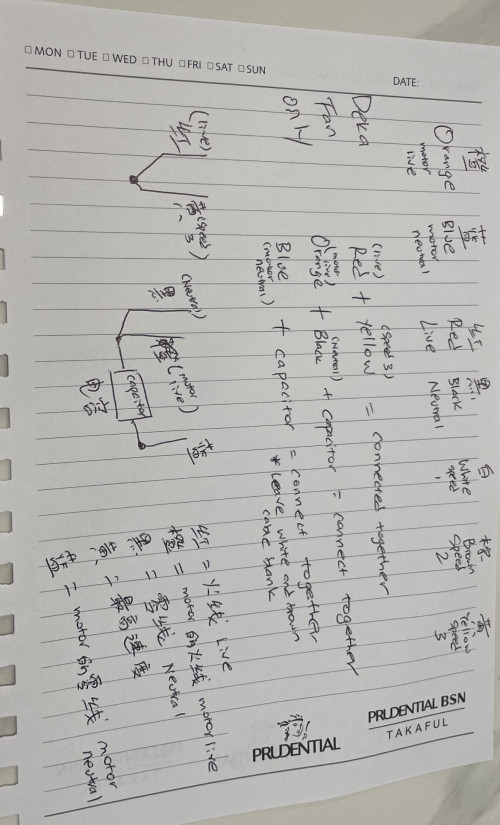 MON TUE WED THU FRI SAT SUN
DATE:
Deka
Fan
only
橙 蓝 红 黑 白 棕 黄
Orange Blue Red Black White Brown Yellow
motor live motor neutral Live Neutral speed 1 speed 2 speed 3
(live) (speed 3)
Red + Yellow = connected together
(motor live) (Neutral)
Orange + Black + capacitor = connect together
Blue + capacitor = connect together
(motor neutral)
* leave white and brown
cable blank
(live)
红
黄 (speed 3)
(Neutral)
黑
橙 (motor live)
capacitor
电容
蓝
红 = 火线 Live
橙 = motor 的火线 motor live
黑 = 零线 Neutral
黄 = 最高速度
蓝 = motor 的零线 motor neutral
PRUDENTIAL
PRUDENTIAL BSN
TAKAFUL